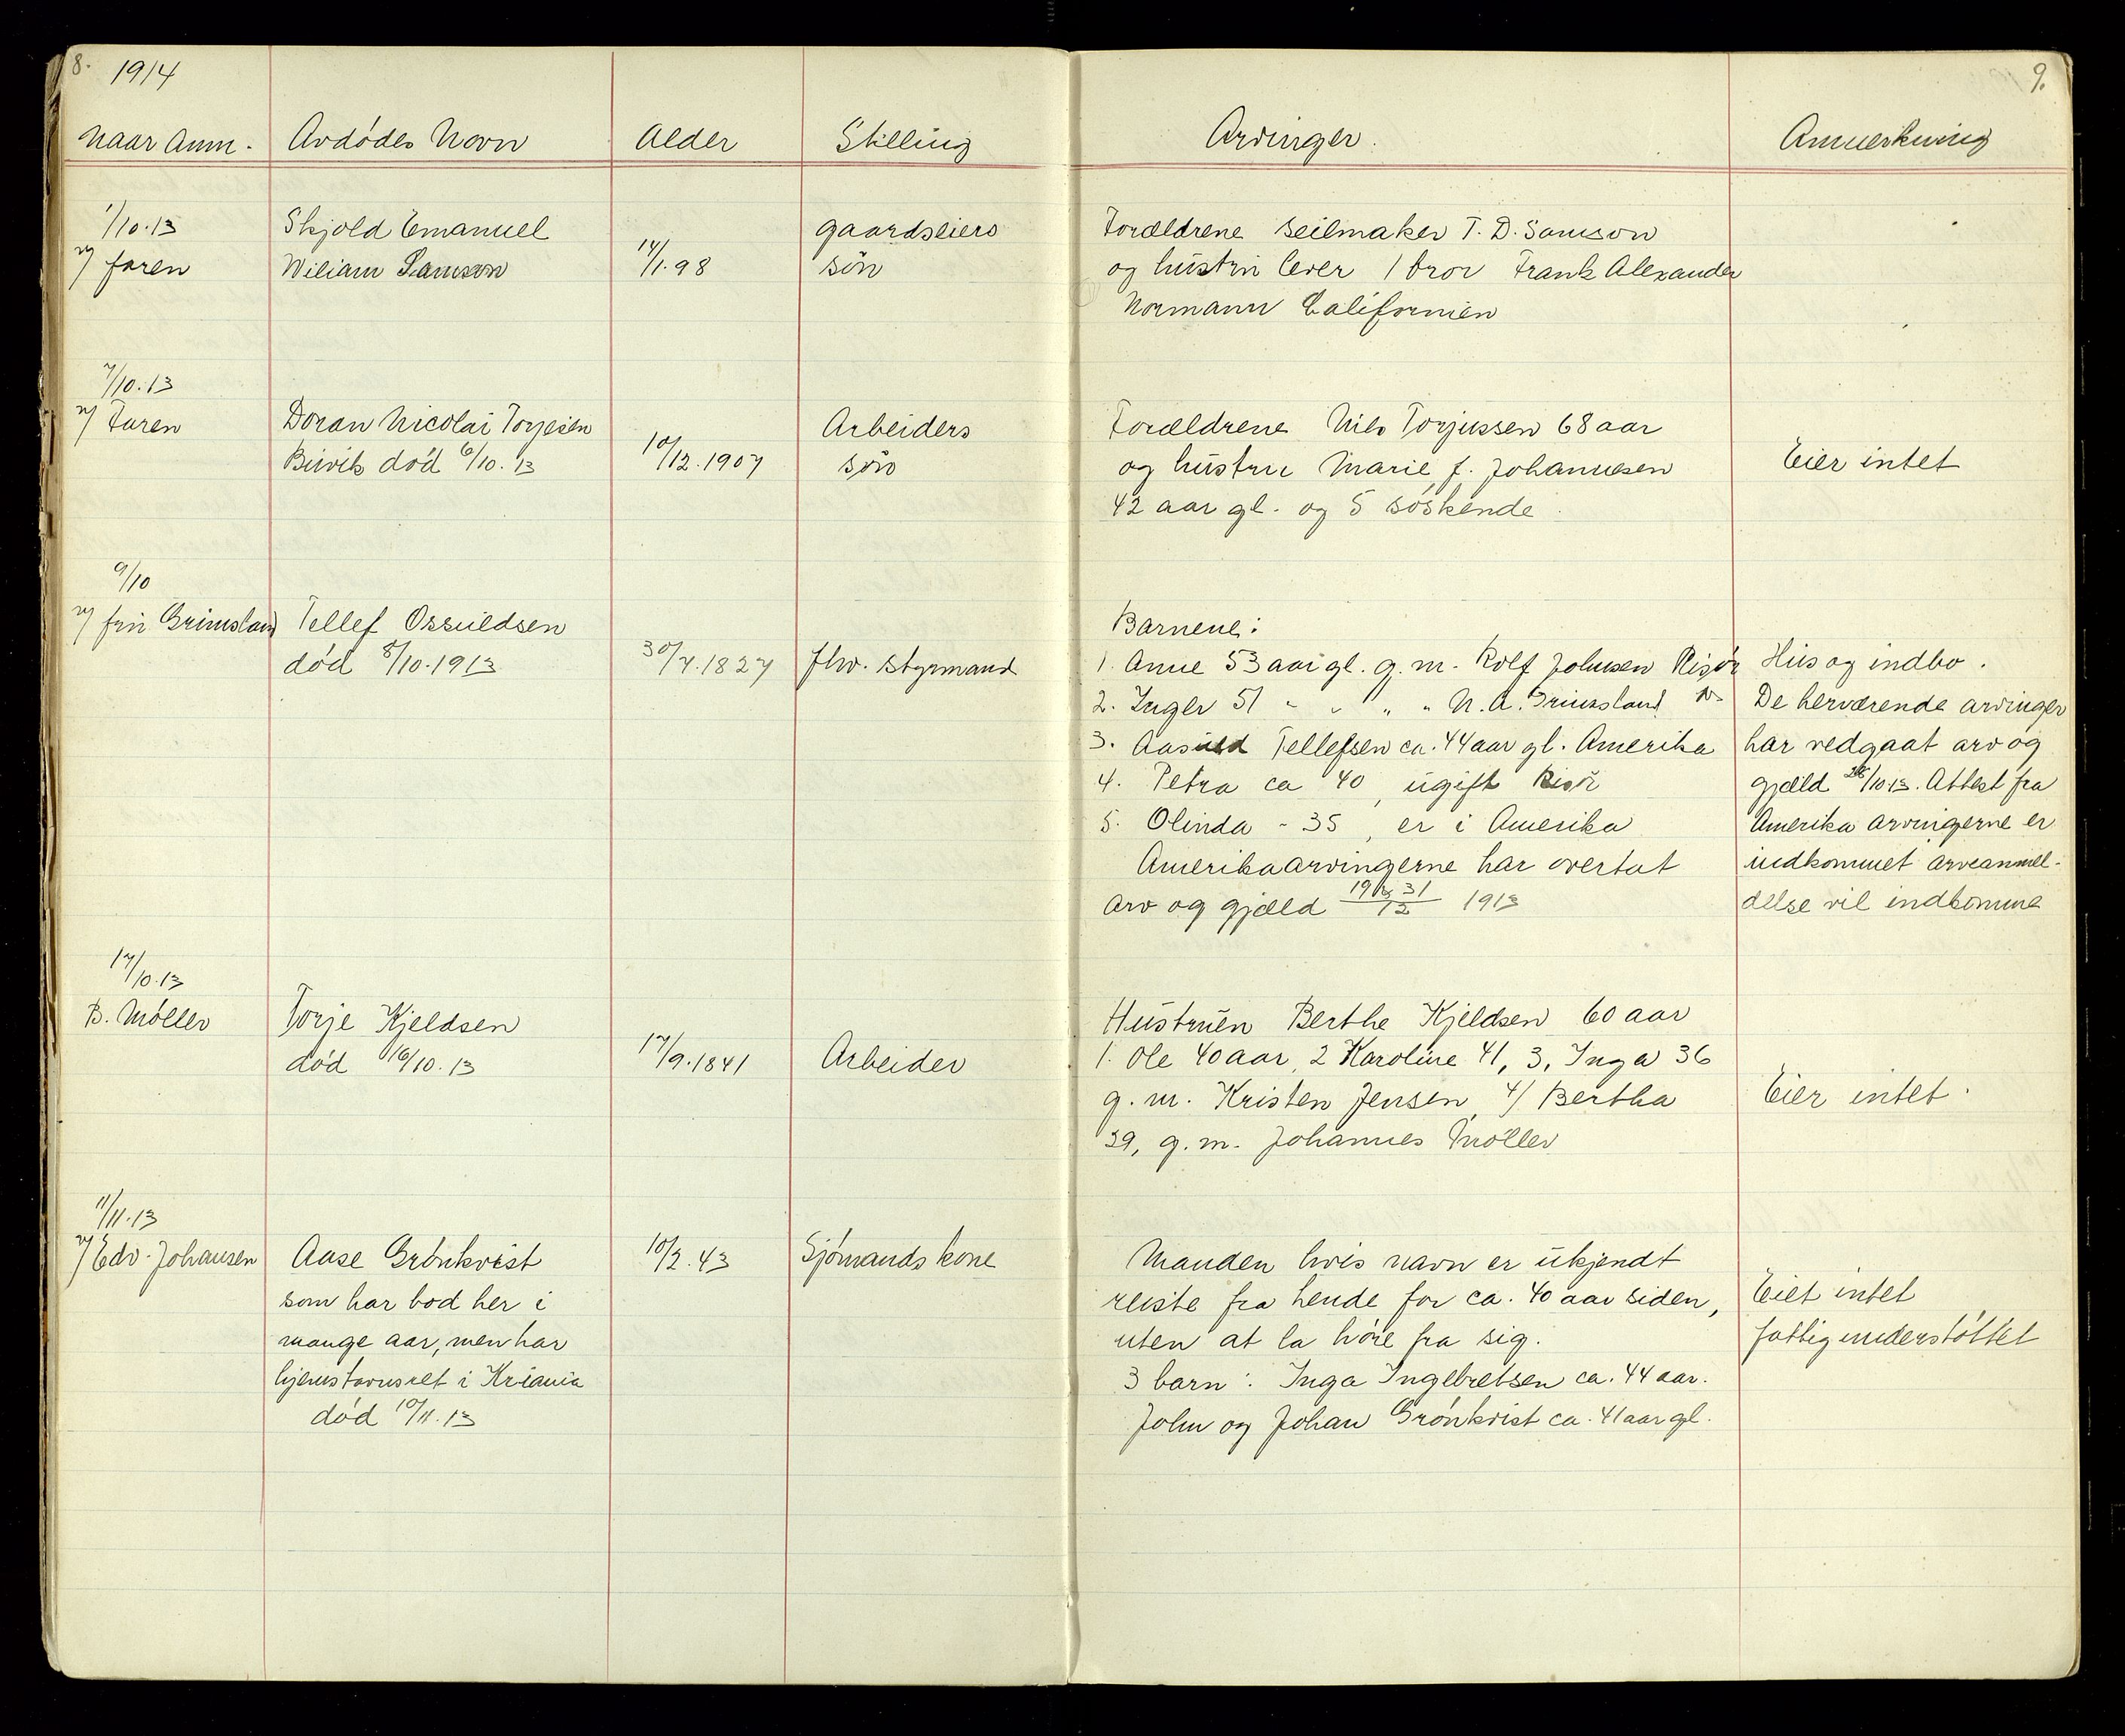 8. 1914
9.
Naar Anm. Avdødes Navn Alder Stilling Arvinger. Anmerkning
1/10.13 Skjold Emanuel gaardseiers Forældrene seilmaker T. D. Samson
v/ faren Wiliam Samson 14/1.98 søn og hustru lever 1 bror Frank Alexander
Normann Californien
7/10.13
v/ Faren Doran Nicolai Torjesen Arbeiders Forældrene Nils Torjussen 68 aar
Buvik død 6/10.13 10/12.1907 søn og hustru Marie f. Johannesen Eier intet
42 aar gl. og 5 søskende
9/10
v/ fru Grimsland Tellef Ossuldsen Barnene:
død 8/10.1913 30/7.1827 fhv. styrmand 1. Anne 53 aar gl. g. m. Rolf Johnsen Risør Hus og indbo.
2. Inger 51 " " " " N. A. Grimsland De herværende arvinger
3. Tellefsen ca. 44 aar gl. Amerika har vedgaat arv og
4. Petra ca 40, ugift Risør gjæld /10 13. Attest fra
5. Olinda - 35, er i Amerika Amerika arvingerne er
Amerikaarvingerne har overtat indkommet arveanmel-
arv og gjæld 31/12 1913 delse vil indkomme
17/10.13
B. Møller Torje Kjeldsen Hustruen Berthe Kjeldsen 60 aar
død 16/10.13 17/9.1841 Arbeider 1. Ole 40 aar, 2 Karoline 41, 3, Inga 36
g. m. Kristen Jensen, 4/ Bertha Eier intet.
39, g. m. Johannes Møller
11/11.13
v/ Edv. Johansen Aase Grønkvist 10/2.43 Sjømands kone Manden hvis navn er ukjendt
som har bod her i reiste fra hende for ca. 40 aar siden, Eiet intet
mange aar, men har uten at la høre fra sig. fattigunderstøttet
hjemstavnsret i Kr.iania 3 barn: Inga Ingebretsen ca. 44 aar.
død 10/11.13 John og Johan Grønkvist ca. 41 aar gl.